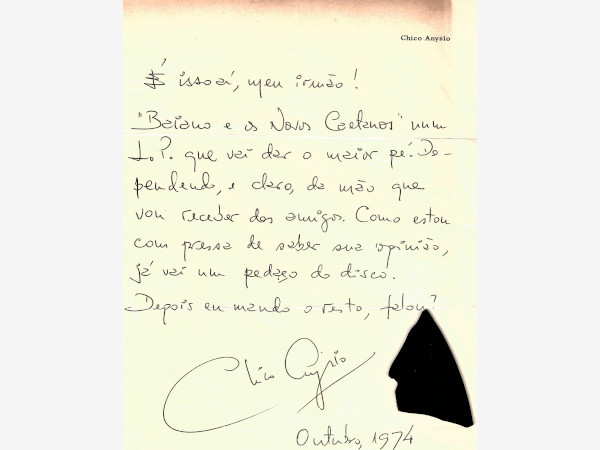 Chico Anysio
É isso aí, meu irmão!
"Baiano e os Novos Caetanos" num
L.P. que vai dar o maior pé. De-
pendendo, é claro, da mão que
vou receber dos amigos. Como estou
com pressa de saber sua opinião,
já vai um pedaço do disco.
Depois eu mando o resto, falou?
Chico Anysio
Outubro, 1974